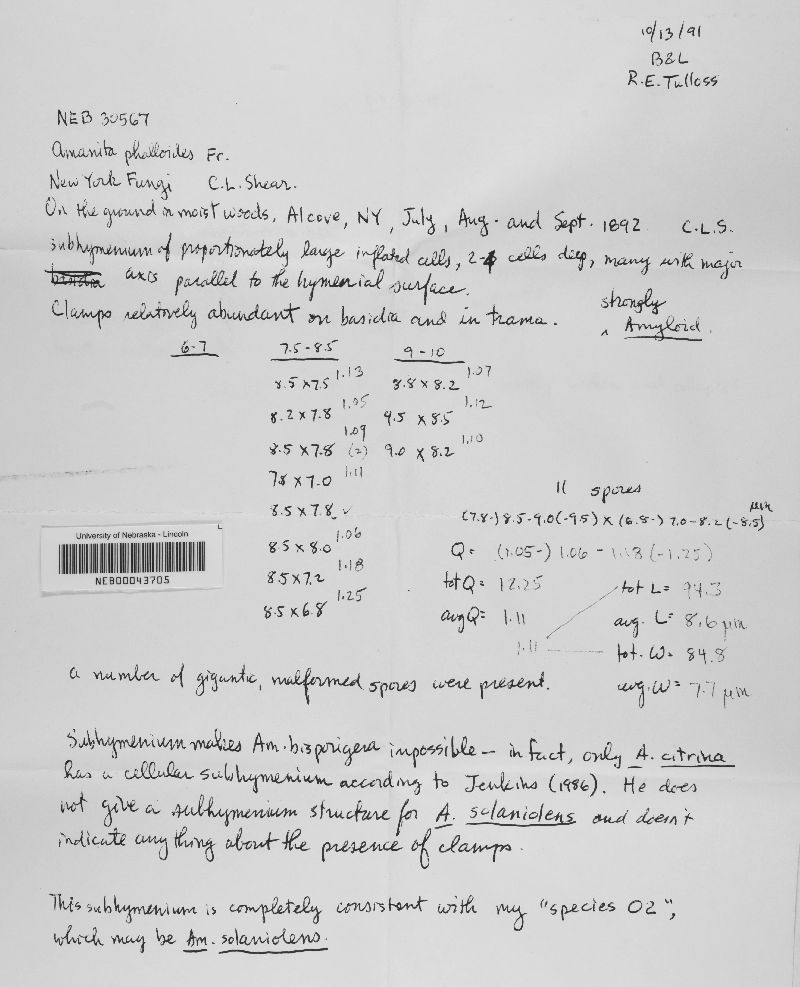 10/13/91
B&L
R.E. Tulloss
NEB 30567
Amanita phalloides Fr.
New York Fungi C.L. Shear.
On the ground in moist woods, Alcove, NY, July, Aug. and Sept. 1892 C.L.S.
subhymenium of proportionately large inflated cells, 2-4 cells deep, many with major
axis parallel to the hymenial surface.
Clamps relatively abundant on basidia and in trama. strongly Amyloid.
6-7 7.5-8.5 9-10
8.5 x 7.5 1.13 8.8 x 8.2 1.07
8.2 x 7.8 1.05 9.5 x 8.5 1.12
8.5 x 7.8 (2) 1.09 9.0 x 8.2 1.10
7.8 x 7.0 1.11
8.5 x 7.8 ✓
8.5 x 8.0 1.06
8.5 x 7.2 1.18
8.5 x 6.8 1.25
11 spores
(7.8-) 8.5-9.0 (-9.5) x (6.8-) 7.0-8.2 (-8.5) μm
Q = (1.05-) 1.06 - 1.18 (-1.25)
tot Q = 12.25 tot L = 94.3
avg Q = 1.11 avg. L = 8.6 μm
1.11 tot. W = 84.8
avg. W = 7.7 μm
University of Nebraska - Lincoln
NEB00043705
a number of gigantic, malformed spores were present.
Subhymenium makes Am. bisporigera impossible — in fact, only A. citrina
has a cellular subhymenium according to Jenkins (1986). He does
not give a subhymenium structure for A. solaniolens and doesn't
indicate anything about the presence of clamps.
This subhymenium is completely consistent with my "species O2",
which may be Am. solaniolens.